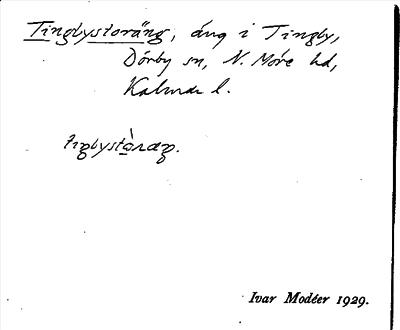 Tingbystoräng, äng i Tingby,
Dörby sn, N. Möre hd,
Kalmar l.
Ivar Modéer 1929.